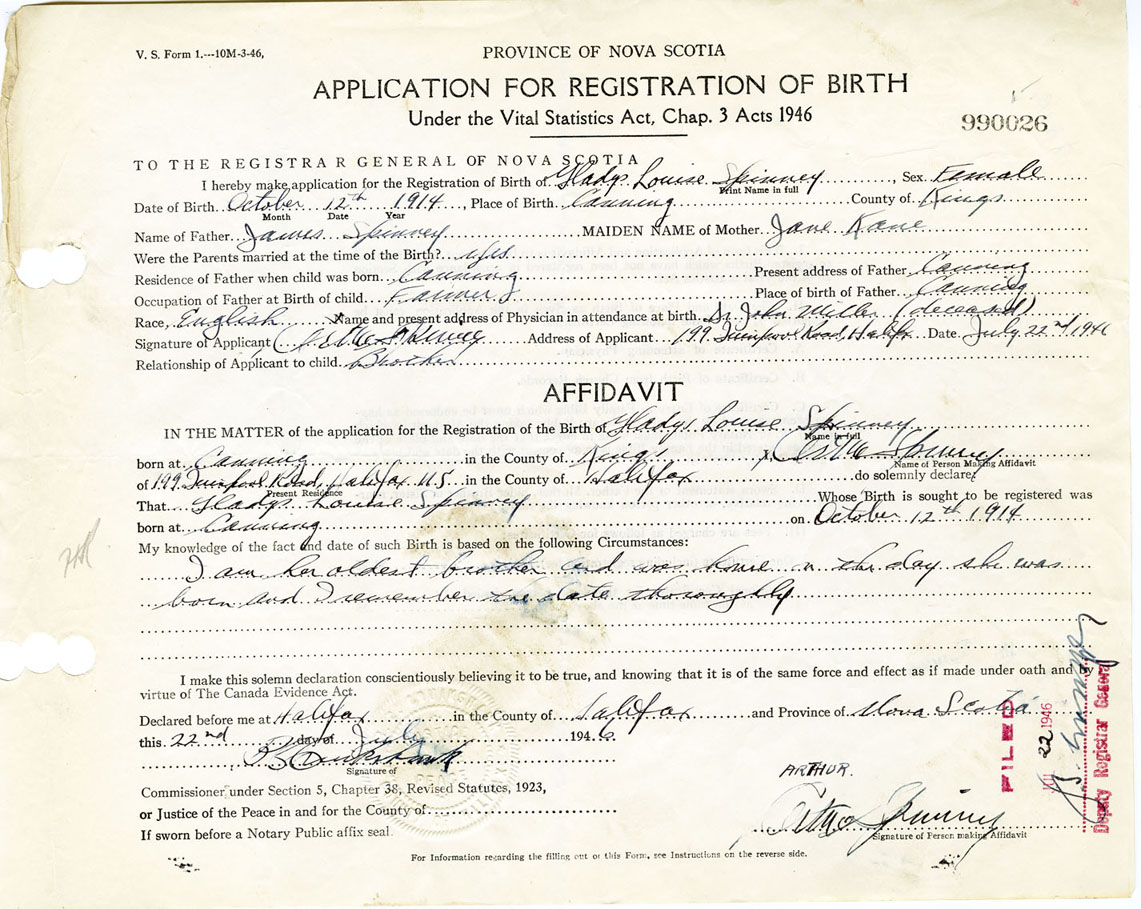 V. S. Form 1.---10M-3-46,
PROVINCE OF NOVA SCOTIA
APPLICATION FOR REGISTRATION OF BIRTH
Under the Vital Statistics Act, Chap. 3 Acts 1946
990026
TO THE REGISTRAR GENERAL OF NOVA SCOTIA
I hereby make application for the Registration of Birth of Gladys Louise Spinney, Sex Female
Print Name in full
Date of Birth October 12th 1914, Place of Birth Canning County of Kings
Month Date Year
Name of Father James Spinney MAIDEN NAME of Mother Jane Kane
Were the Parents married at the time of the Birth? Yes
Residence of Father when child was born Canning Present address of Father Canning
Occupation of Father at Birth of child Farmer Place of birth of Father Canning
Race, English Name and present address of Physician in attendance at birth Dr John Miller (deceased)
Signature of Applicant Spinney Address of Applicant 199 Road, Halifx Date July 22nd 1946
Relationship of Applicant to child Brother
AFFIDAVIT
IN THE MATTER of the application for the Registration of the Birth of Gladys Louise Spinney
Name in full
born at Canning in the County of Kings I, Spinney
Name of Person Making Affidavit
of 199 Road, Halifax N S in the County of Halifax do solemnly declare;
Present Residence
That Gladys Louise Spinney Whose Birth is sought to be registered was
born at Canning on October 12th 1914
My knowledge of the fact and date of such Birth is based on the following Circumstances:
I am her oldest brother and was home on the day she was
born and I remember the date thoroughly
I make this solemn declaration conscientiously believing it to be true, and knowing that it is of the same force and effect as if made under oath and by
virtue of The Canada Evidence Act.
Declared before me at Halifax in the County of Halifax and Province of Nova Scotia
this 22nd day of July 1946
Signature of
Commissioner under Section 5, Chapter 38, Revised Statutes, 1923,
or Justice of the Peace in and for the County of
If sworn before a Notary Public affix seal.
ARTHUR.
Arthur Spinney
Signature of Person making Affidavit
FILED
22 1946
Deputy Registrar General
For Information regarding the filling out of this Form, see Instructions on the reverse side.